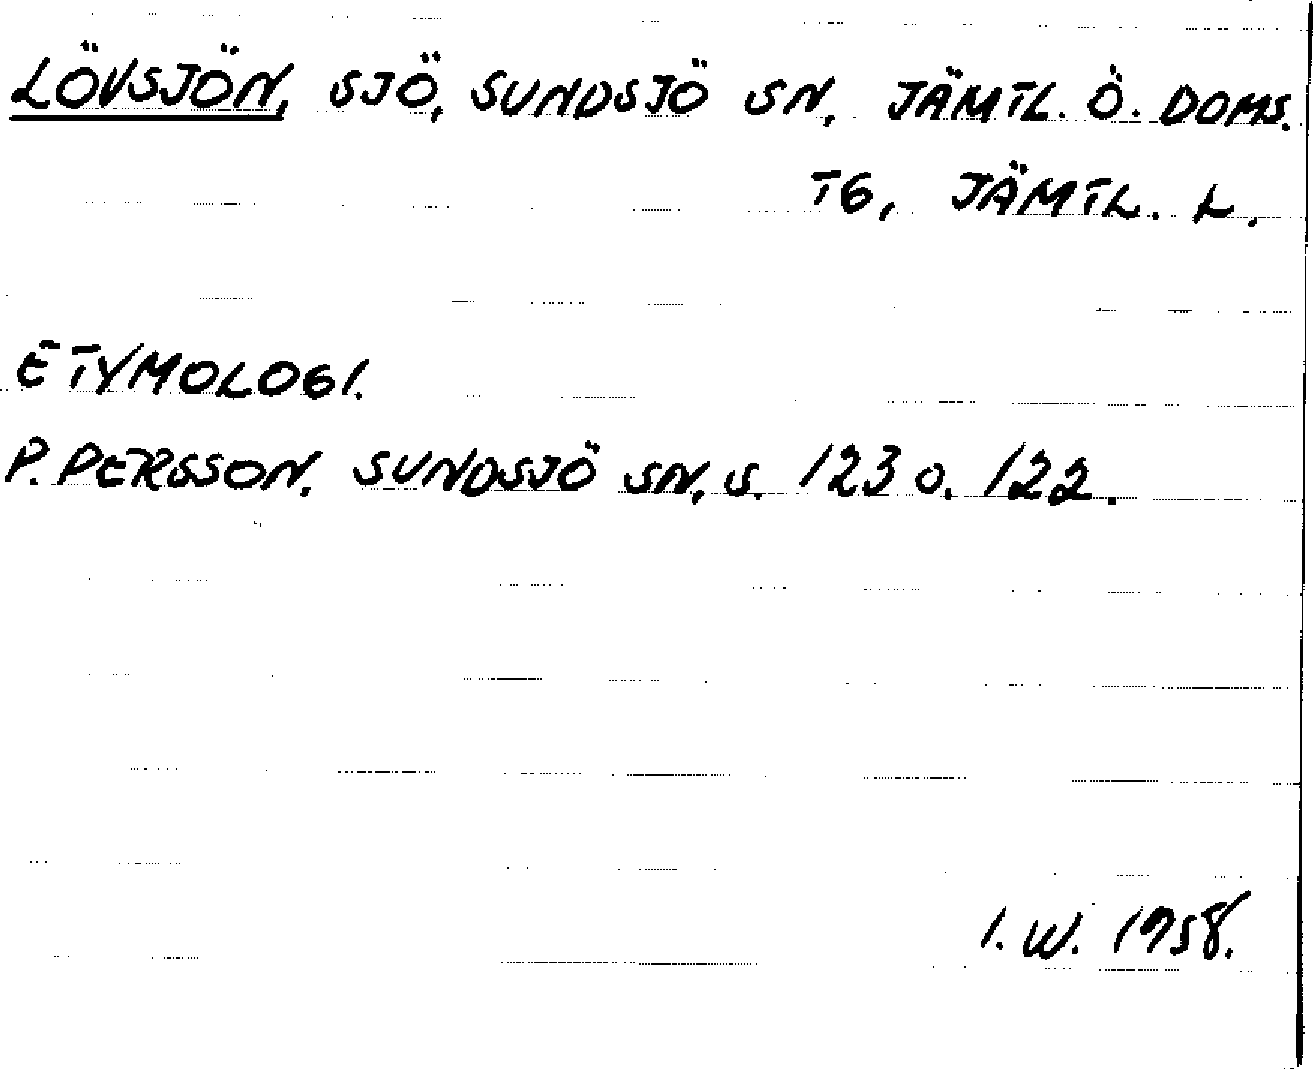 LÖVSJÖN, SJÖ, SUNDSJÖ SN, JÄMTL. Ö. DOMS.
TG, JÄMTL. L.
ETYMOLOGI.
P. PERSSON, SUNDSJÖ SN, S. 123 O. 122.
I. W. 1958.